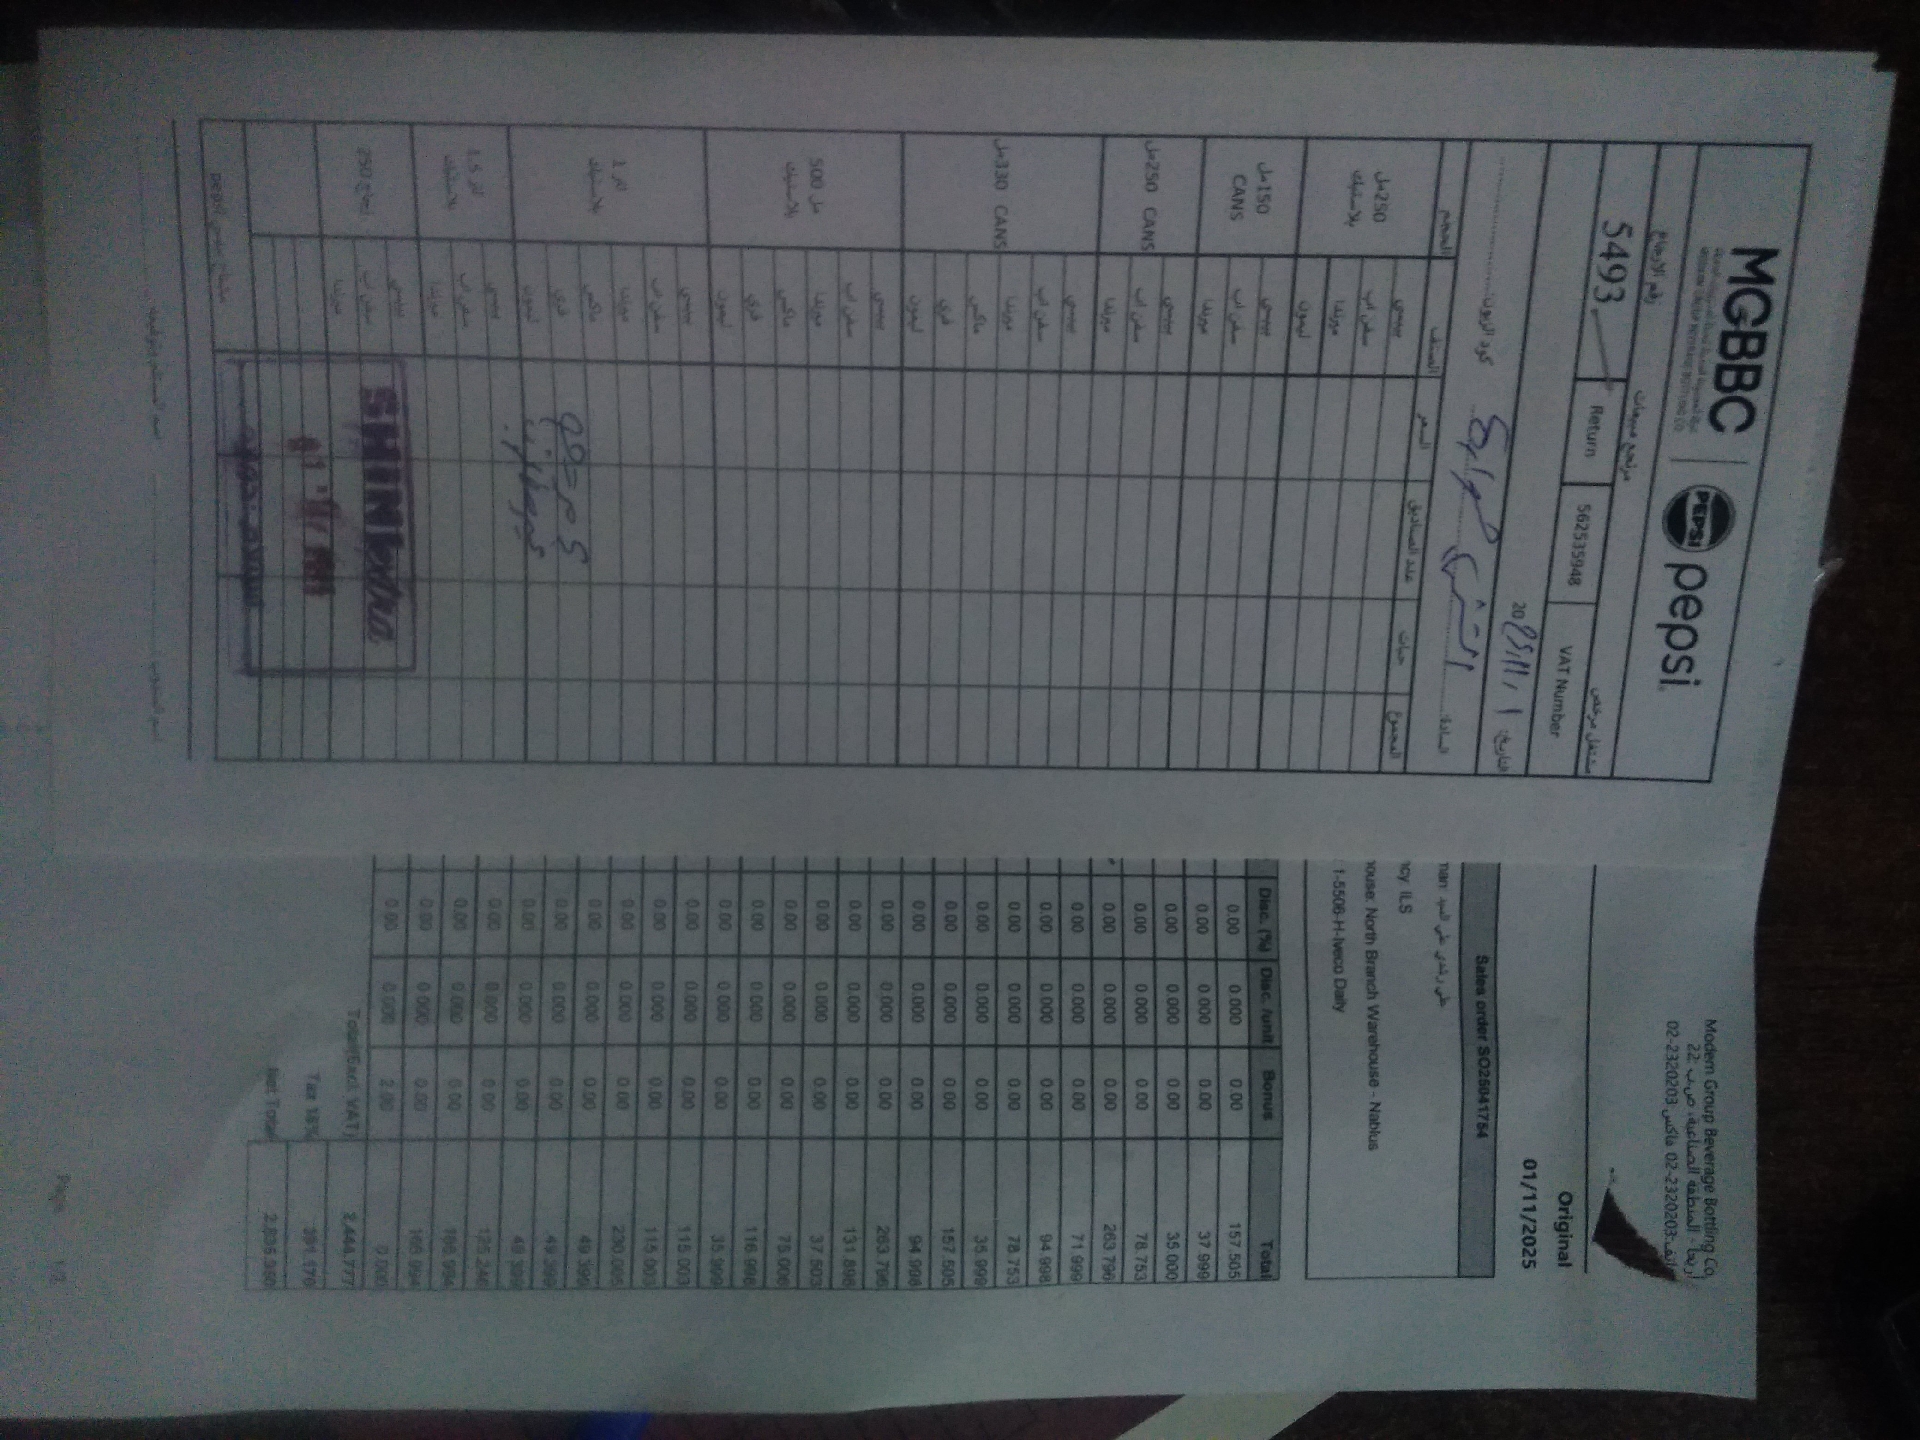 MGBBC
pepsi
PEPSI
رقم الارجاع
مرتجع مبيعات
مشتغل مرخص
5493
Return
562535948
VAT Number
كود الزبون
التاريخ: 1/11/2025
السادة:
الحجم
الصنف
السعر
عدد الصناديق
حبات
المجموع
250مل بلاستيك
بيبسي
سفن اب
ميرندا
ليمون
150مل CANS
بيبسي
سفن اب
ميرندا
250مل CANS
بيبسي
سفن اب
ميرندا
330مل CANS
بيبسي
سفن اب
ميرندا
ماكس
فري
ليمون
500 مل بلاستيك
بيبسي
سفن اب
ميرندا
ماكس
فري
ليمون
1 لتر بلاستيك
بيبسي
سفن اب
ميرندا
ماكس
فري
ليمون
1.5 لتر بلاستيك
بيبسي
سفن اب
ميرندا
زجاج 250
بيبسي
سفن اب
ميرندا
SHINI extra
Modern Group Beverage Bottling Co,
أريحا - المنطقة الصناعية، ص ب 22
هاتف:02-2320203 فاكس 02-2320203
Original
01/11/2025
Sales order SO25041754
ncy. ILS
ouse. North Branch Warehouse - Nablus
1-5506-H-Iveco Daily
Disc. (%) Disc. /unit Bonus Total
0.00 0.000 0.00 157.505
0.00 0.000 0.00 37.999
0.00 0.000 0.00 35.000
0.00 0.000 0.00 78.753
0.00 0.000 0.00 263.796
0.00 0.000 0.00 71.999
0.00 0.000 0.00 94.998
0.00 0.000 0.00 78.753
0.00 0.000 0.00 35.999
0.00 0.000 0.00 157.505
0.00 0.000 0.00 94.998
0.00 0.000 0.00 263.796
0.00 0.000 0.00 131.898
0.00 0.000 0.00 37.503
0.00 0.000 0.00 75.006
0.00 0.000 0.00 116.998
0.00 0.000 0.00 35.999
0.00 0.000 0.00 115.003
0.00 0.000 0.00 115.003
0.00 0.000 0.00 230.005
0.00 0.000 0.00 49.399
0.00 0.000 0.00 49.399
0.00 0.000 0.00 49.399
0.00 0.000 0.00 125.246
0.00 0.000 0.00
0.00 0.000 0.00
0.00 0.000 2.00 0.000
Total(Excl. VAT) 2,444.777
Tax 16% 391.176
Net Total
Page 1/2